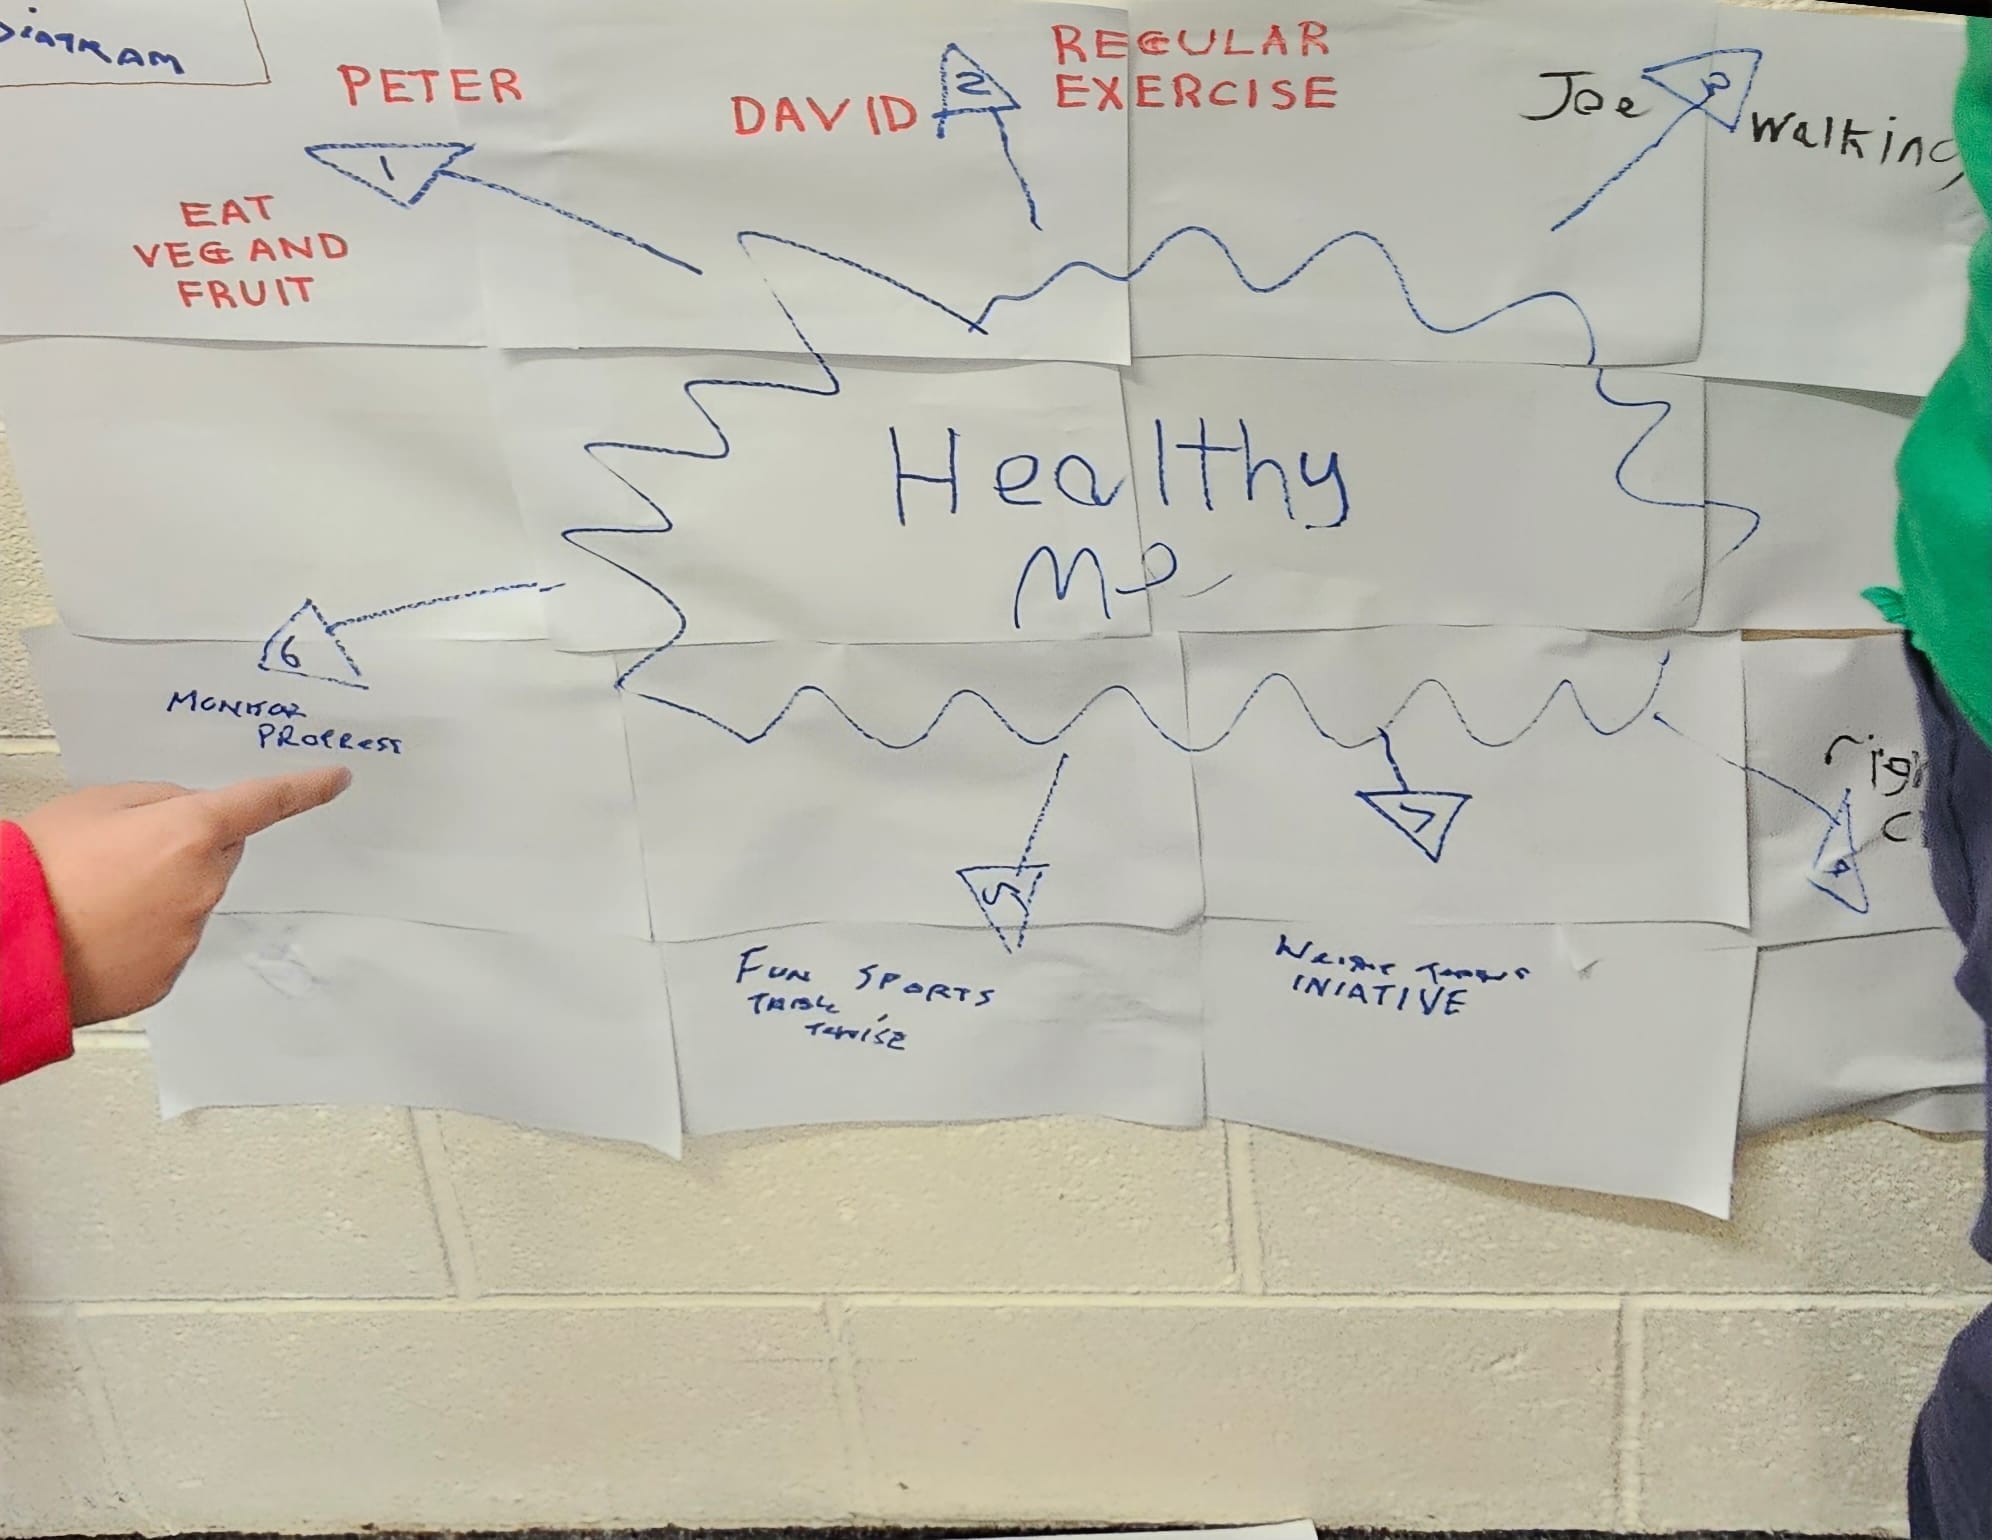 DIAGRAM
PETER
1
EAT
VEG AND
FRUIT
DAVID
2
REGULAR
EXERCISE
Joe
3
Walking
Healthy
Me
6
MONITOR
PROGRESS
5
FUN SPORTS
TABLE
7
INIATIVE
4